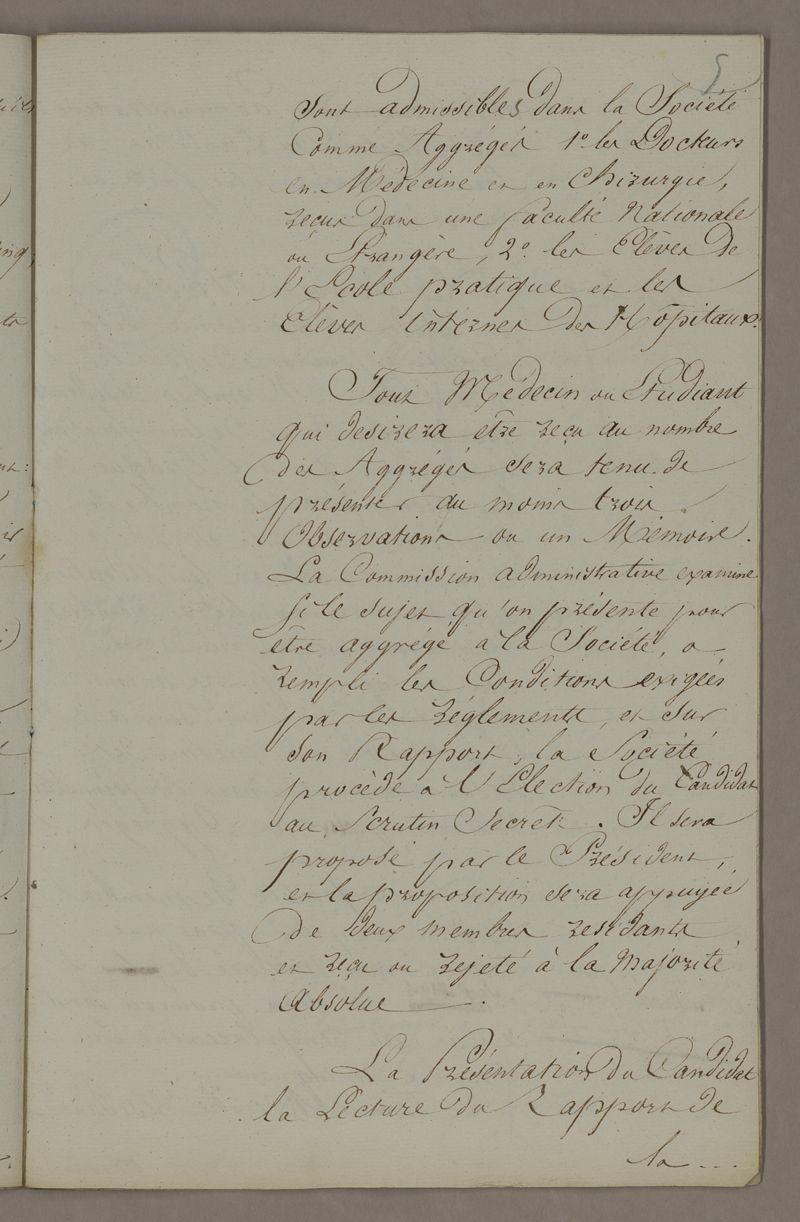 5
Sont admissibles dans la Société
Comme Aggrégés 1.º les Docteurs
en Médecine et en Chirurgie,
reçus dans une faculté Nationale
ou Etrangère, 2.º les Elèves de
l'Ecole pratique et les
Elèves internes des Hôpitaux.
Tout Médecin ou Etudiant
qui desirera etre reçu au nombre
des Aggrégés sera tenu de
présenter au moins trois
Observations ou un Mémoire.
La Commission administrative examine
si le sujet qu'on présente pour
être aggrégé à la Société, a
rempli les Conditions exigées
par les réglements, et sur
son Rapport, la Société
procède à l'Election du Candidat
au Scrutin Secret. Il sera
proposé par le Président,
et la proposition sera appuyée
de deux membres residants
et reçu ou rejeté à la Majorité
Absolue.
La Présentation du Candidat
la Lecture du Rapport de
la ...